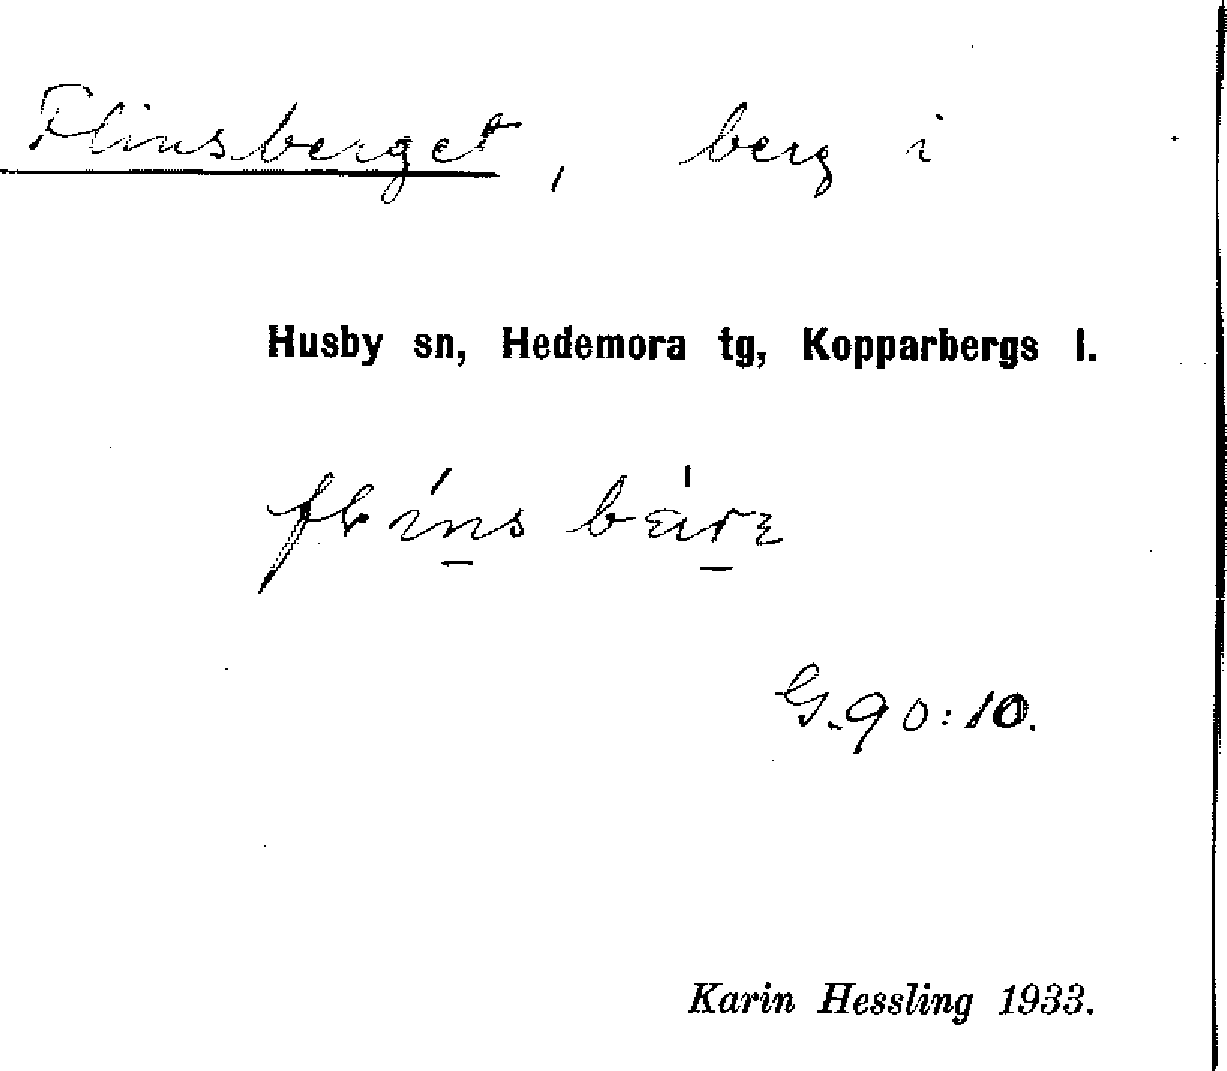 Flinsberget, berg i
Husby sn, Hedemora tg, Kopparbergs l.
G. 90:10.
Karin Hessling 1933.